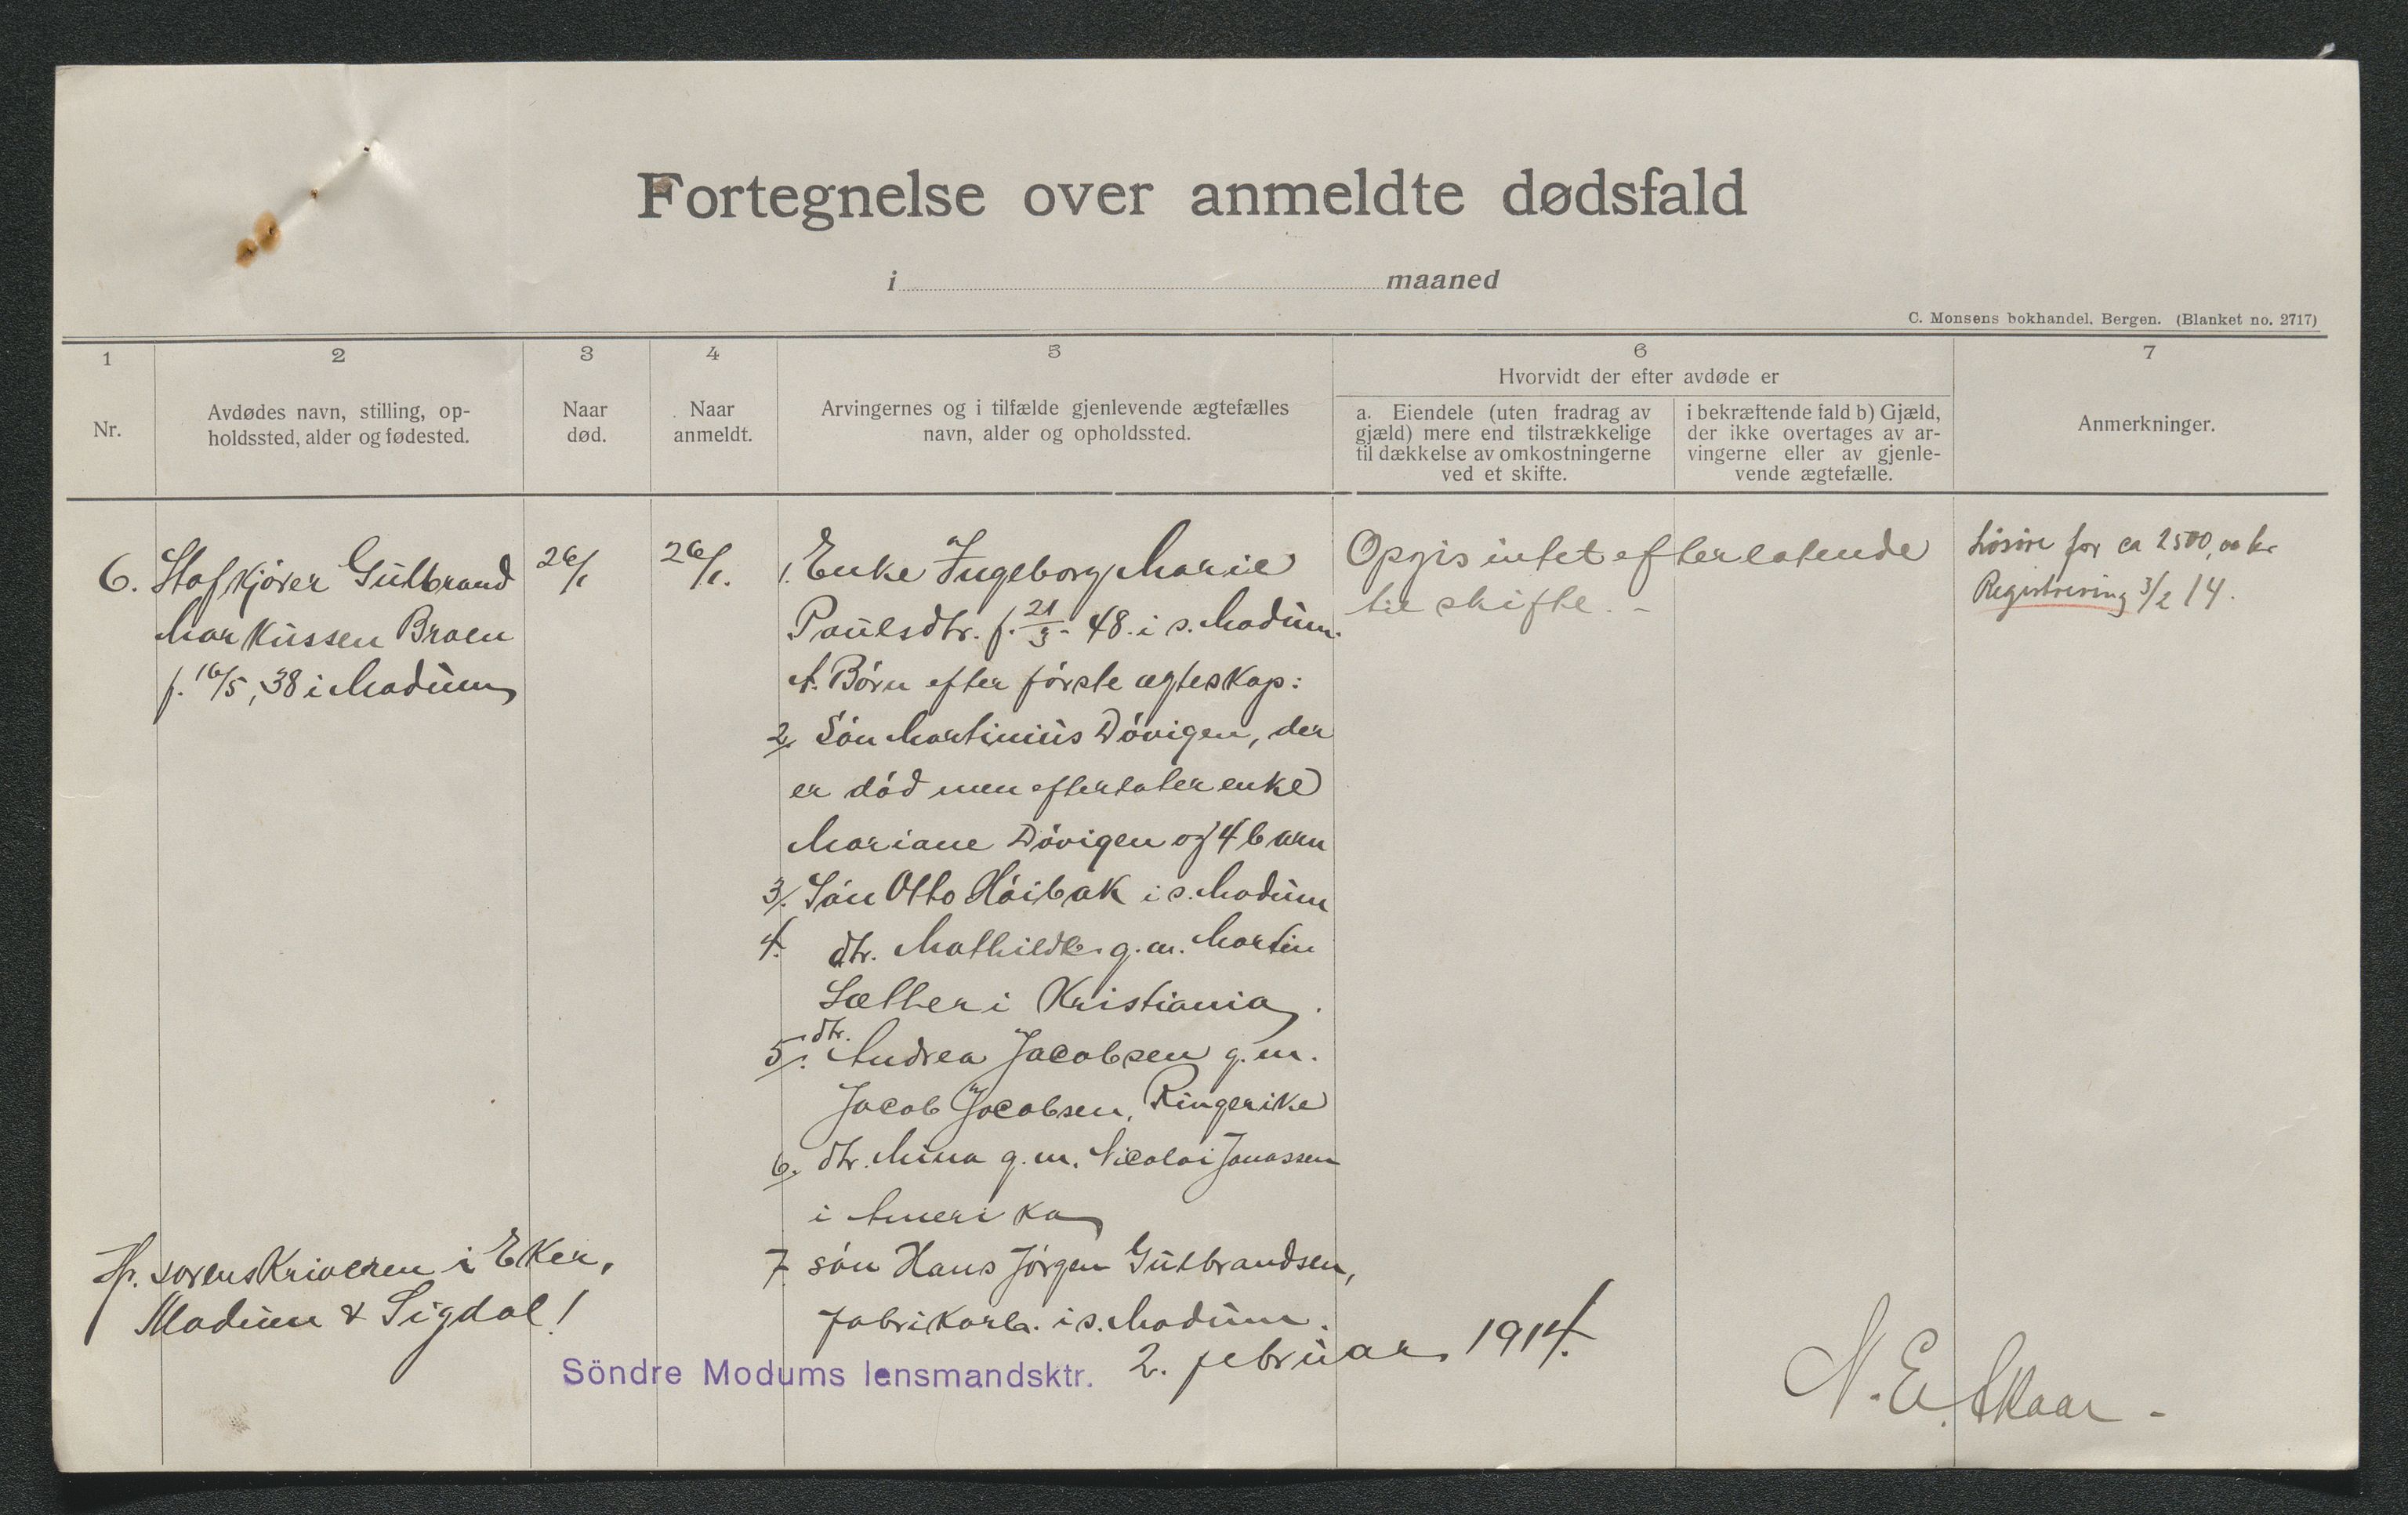 Fortegnelse over anmeldte dødsfald
i maaned
C. Monsens bokhandel, Bergen. (Blanket no. 2717)
1
2
3
4
5
6
7
Nr.
Avdødes navn, stilling, op-
holdssted, alder og fødested.
Naar
død.
Naar
anmeldt.
Arvingernes og i tilfælde gjenlevende ægtefælles
navn, alder og opholdssted.
Hvorvidt der efter avdøde er
a. Eiendele (uten fradrag av
gjæld) mere end tilstrækkelige
til dækkelse av omkostningerne
ved et skifte.
i bekræftende fald b) Gjæld,
der ikke overtages av ar-
vingerne eller av gjenle-
vende ægtefælle.
Anmerkninger.
6. Stofkjører Gulbrand
Markussen Braen
f. 16/5, 38 i Modum
26/1
26/1.
1. Enke Ingeborg Marie
Paulsdtr. f. 21/3 - 48. i s. Modum.
A. Børn efter første ægteskap:
2. Søn Martinius Døvigen, der
er død men efterlater enke
Mariane Døvigen og 4 barn
3. Søn Otto Høibak i s. Modum
4. dtr. Mathilde g.m. Martin
Sætheri Kristiania.
5. dtr. Andrea Jacobsen g.m.
Jacob Jacobsen, Ringerike
6. dtr. Mina g.m. Nicolai Jonassen
i Amerika
7. søn Hans Jørgen Gulbrandsen,
fabrikarb. i s. Modum.
Opgis intet efterlatende
til skifte. -
Løsøre for ca 2500,00 kr
Registrering 3/2 14.
Hr. sorenskriveren i Eker,
Modum & Sigdal!
Söndre Modums lensmandsktr. 2. februar 1914.
N. E. Skaar -